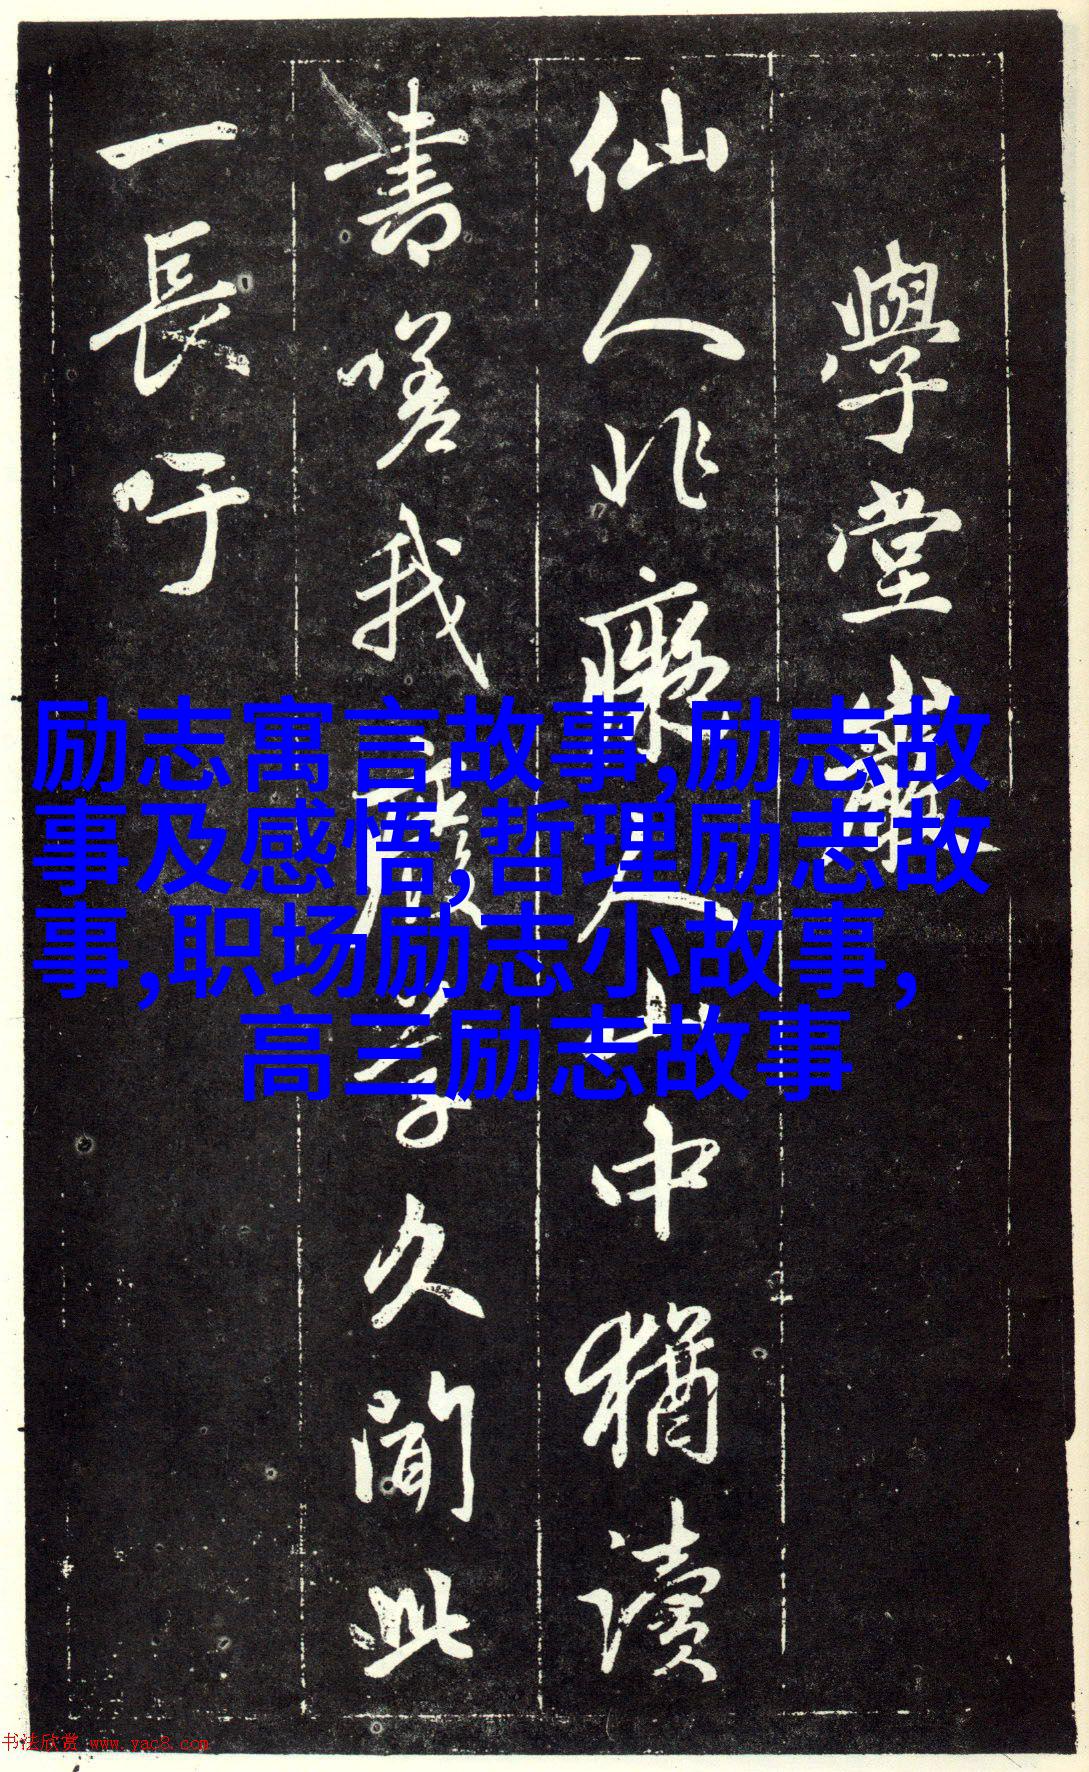 學堂巖
仙人非癡人山中猶讀
書嗟我廢學久聞此
一長吁
励志寓言故事,励志故
事及感悟,哲理励志故
事,职场励志小故事,
高三励志故事
书法欣赏 www.yac8.com